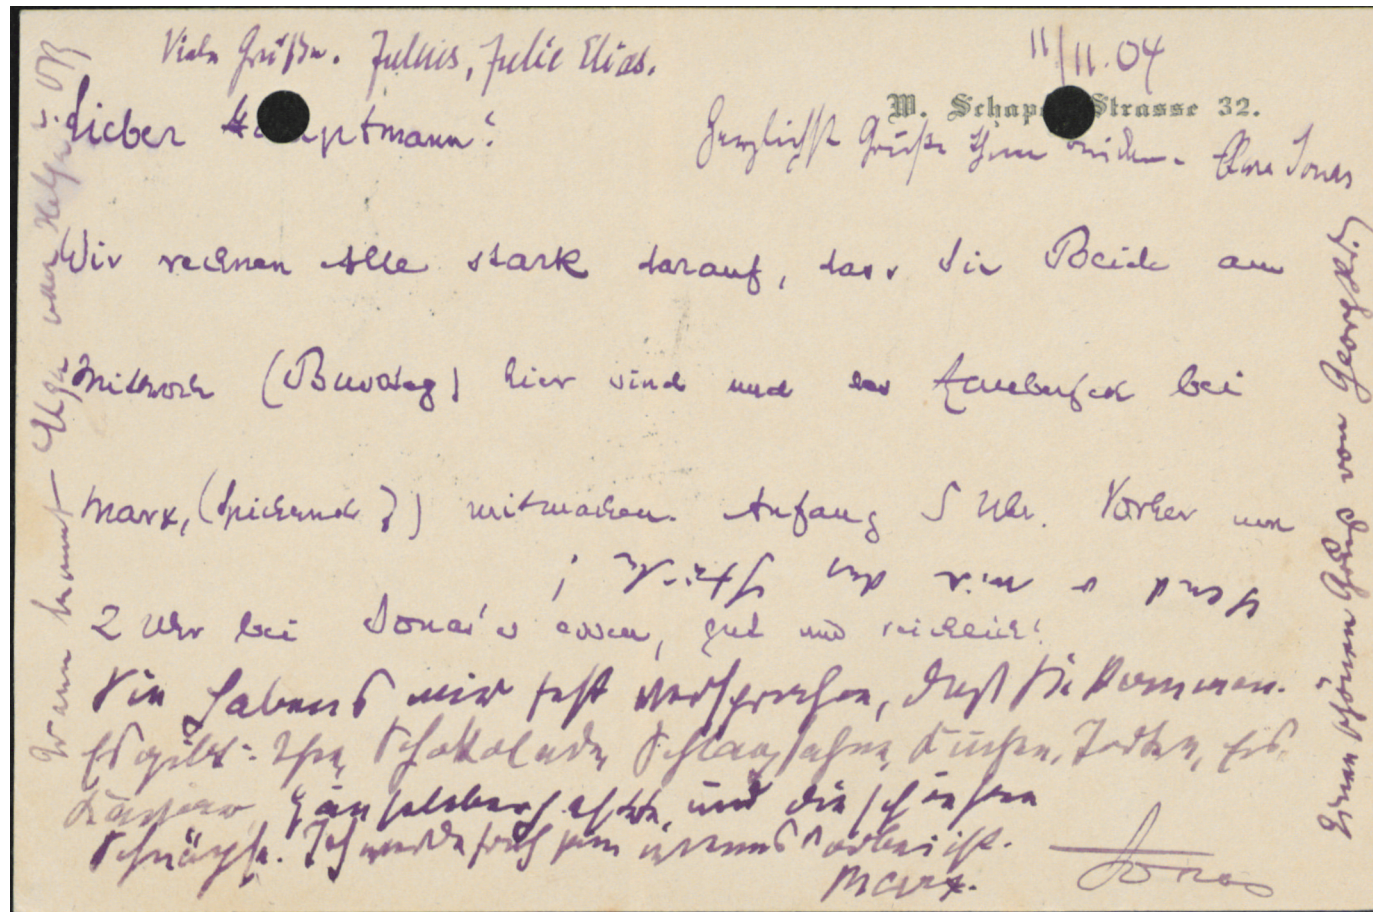 Viele Grüße. Julius, Julie Elias.
11/11.04
W. Schap Strasse 32.
Lieber Hauptmann!
Herzlichste Grüße Ihnen beiden. Clara Jonas
Wir rechnen Alle stark darauf, dass Sie Beide am
Mittwoch (Busstag) hier sind und das bei
Marx, (Spichernstr 7) mitmachen. Anfang 5 Uhr. Vorher um
2 Uhr bei Jonas's essen, gut und reichlich!
Sie haben's mir fest versprochen, daß Sie kommen.
Es gibt: Thee, Schokolade, Schlagsahne, Kuchen, Torten, Eis,
Kaviar, Gänseleberpastete, und die schönsten
Schnäpse. Ich werde froh sein wenn's vorbei ist.
Marx.
Jonas
Einen schönen Gruß von Georg